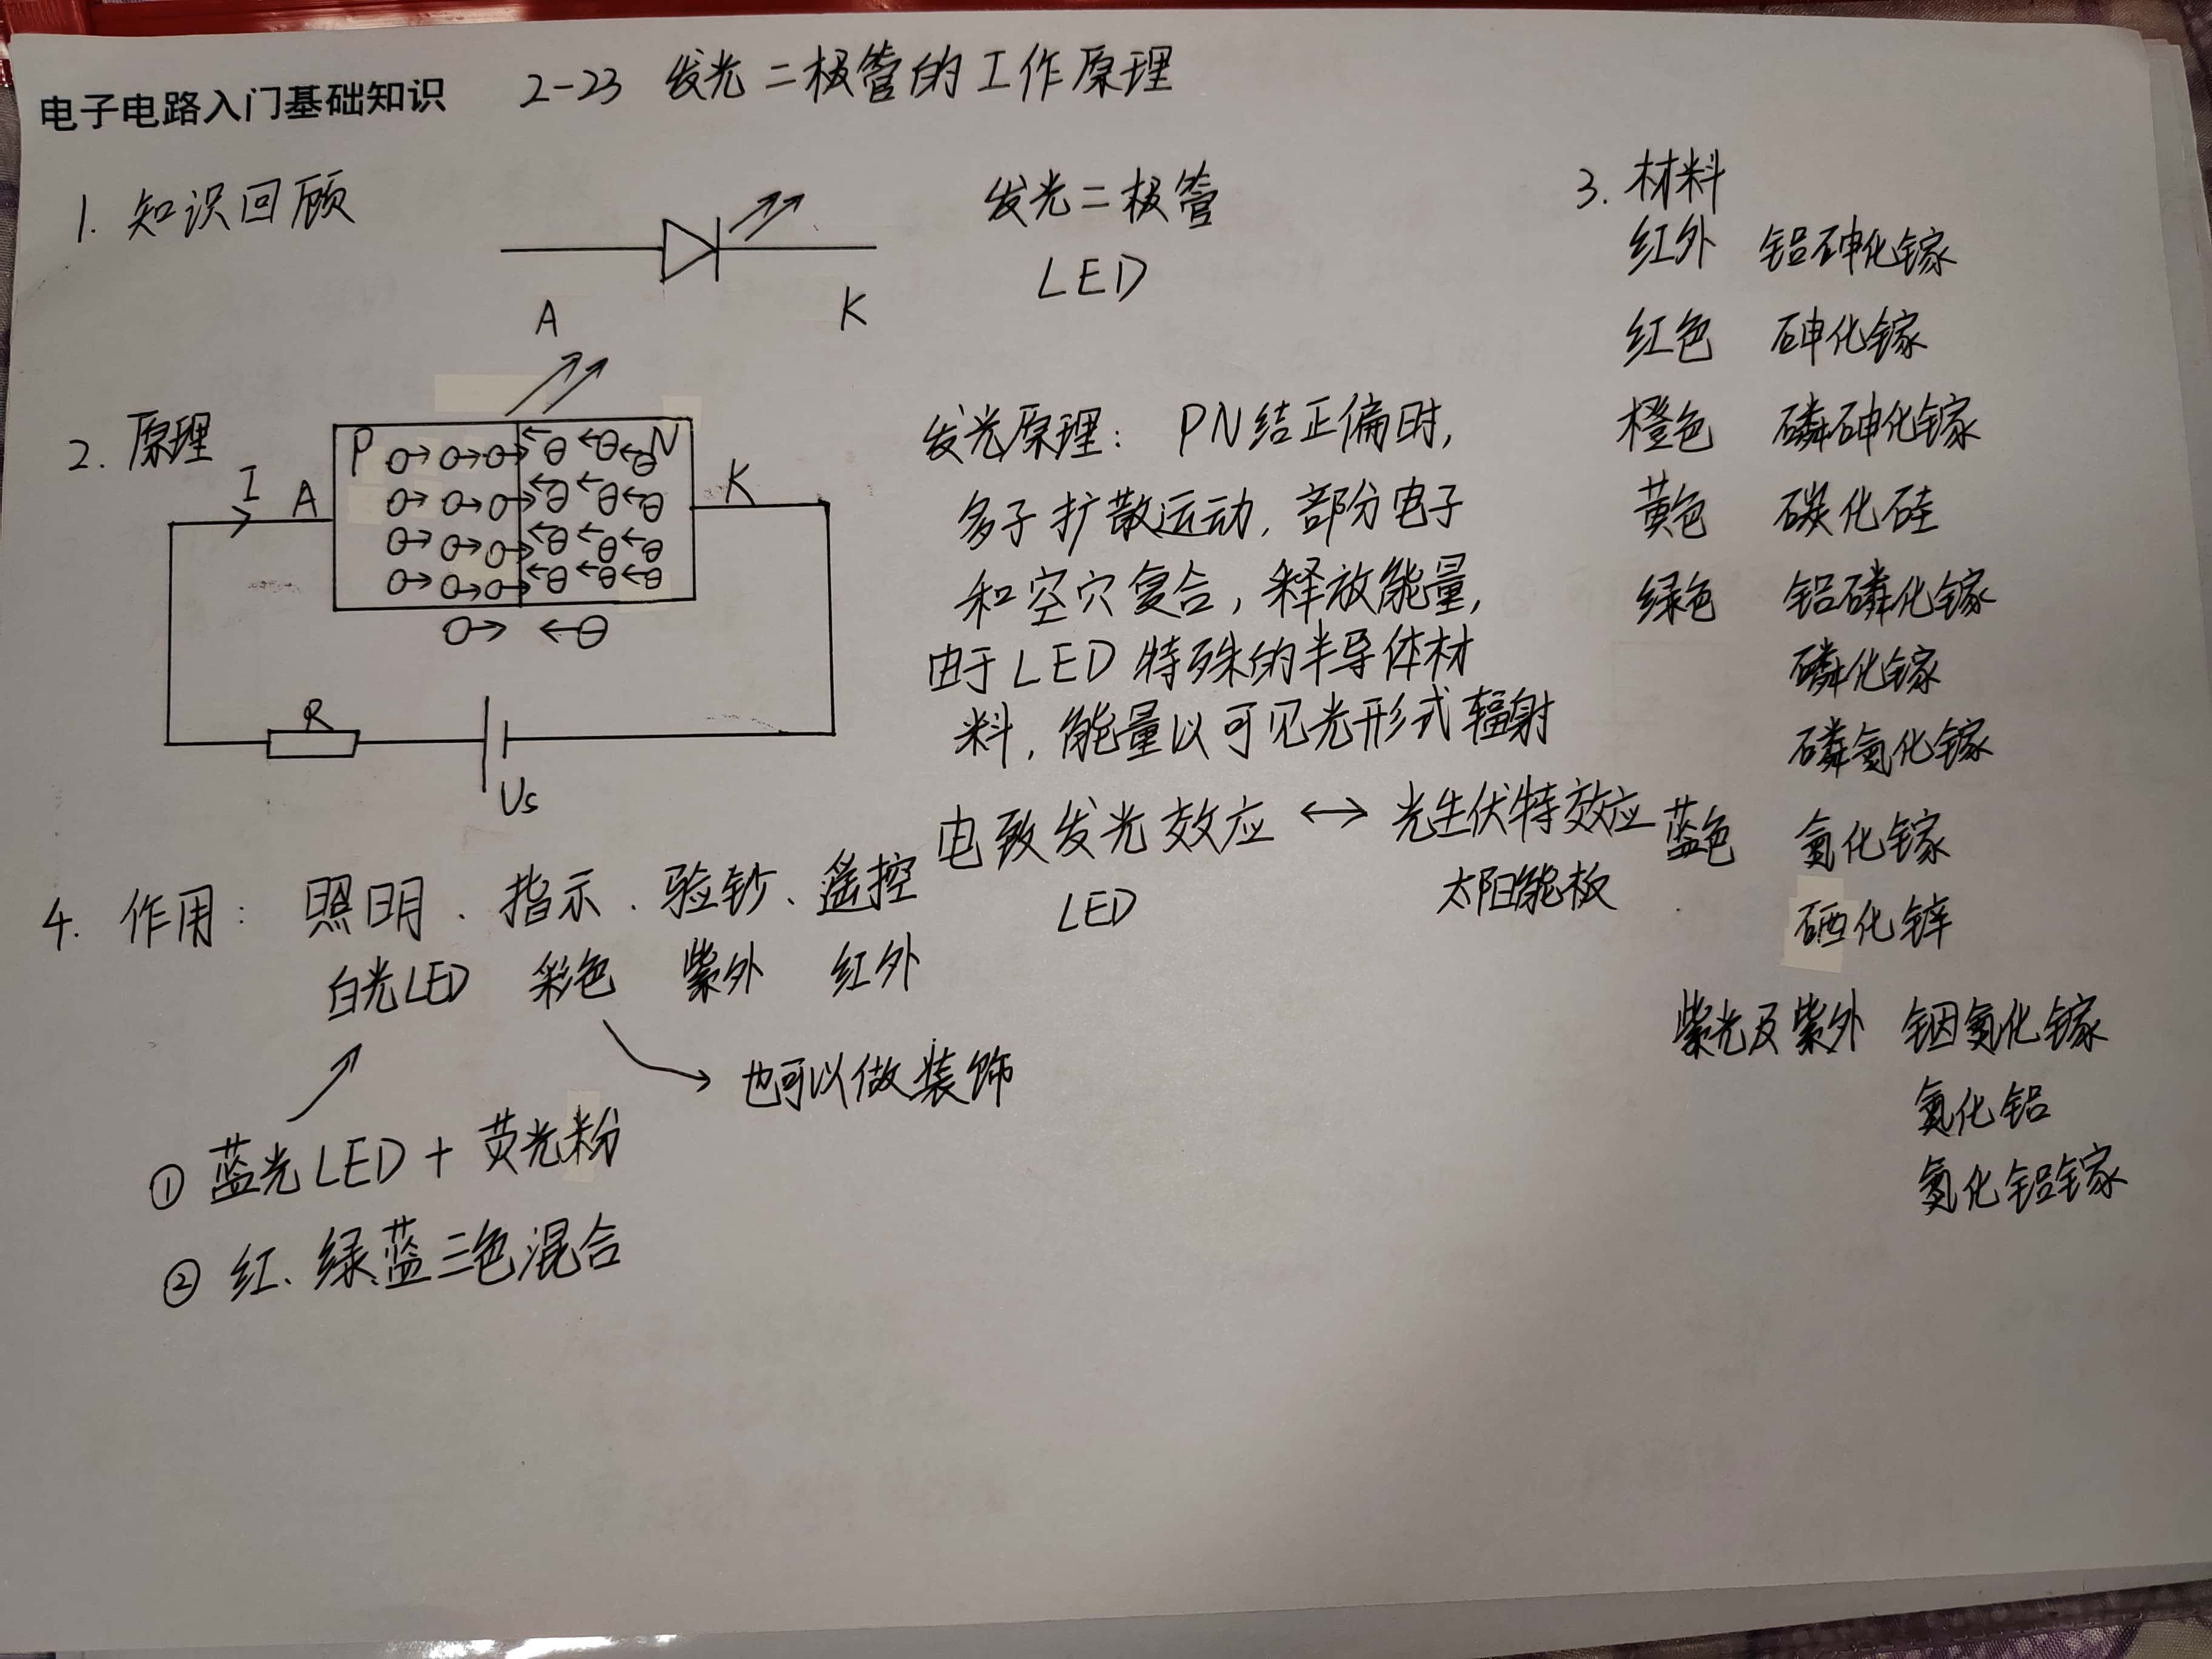 电子电路入门基础知识 2-23 发光二极管的工作原理
1. 知识回顾
A K
发光二极管
LED
2. 原理
P N
I A K
R
Us
发光原理： PN结正偏时,
多子扩散运动, 部分电子
和空穴复合, 释放能量,
由于LED特殊的半导体材
料, 能量以可见光形式辐射
电致发光效应 ↔ 光生伏特效应
LED 太阳能板
3. 材料
红外 铝砷化镓
红色 砷化镓
橙色 磷砷化镓
黄色 碳化硅
绿色 铝磷化镓
磷化镓
磷氮化镓
蓝色 氮化镓
硒化锌
紫光及紫外 铟氮化镓
氮化铝
氮化铝镓
4. 作用： 照明、指示、验钞、遥控
白光LED 彩色 紫外 红外
也可以做装饰
① 蓝光LED + 荧光粉
② 红、绿、蓝三色混合